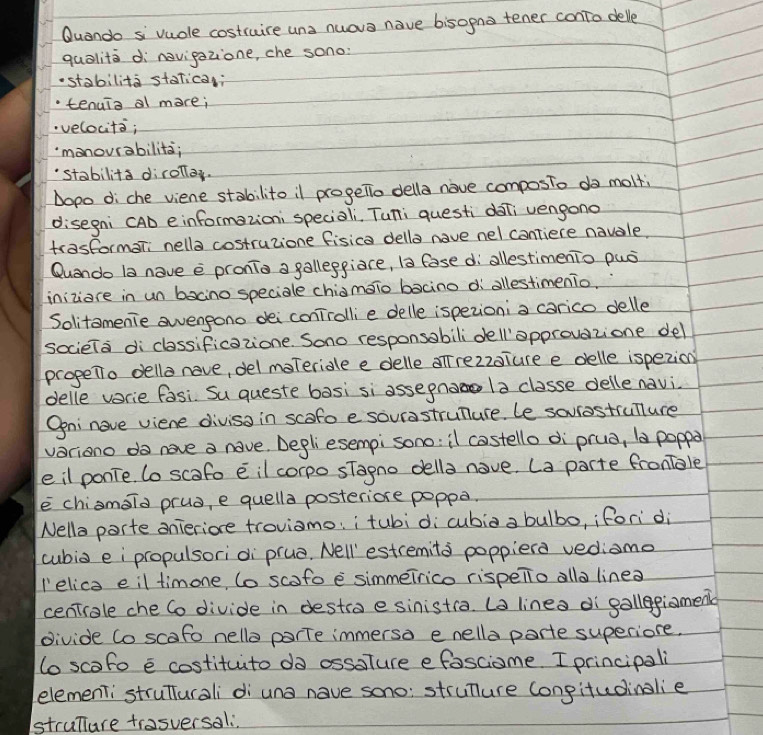 Quando si vuole costruire una nuova nave bisogna tener conto delle
qualità di navigazione, che sono:
• stabilità statica;
• tenuta al mare;
• velocità;
• manovrabilità;
• stabilità di rotta.
Dopo di che viene stabilito il progetto della nave composto da molti
disegni CAD e informazioni speciali. Tutti questi dati vengono
trasformati nella costruzione fisica della nave nel cantiere navale.
Quando la nave è pronta a galleggiare, la fase di allestimento può
iniziare in un bacino speciale chiamato bacino di allestimento.
Solitamente avvengono dei controlli e delle ispezioni a carico delle
società di classificazione. Sono responsabili dell'approvazione del
progetto della nave, del materiale e delle attrezzature e delle ispezioni
delle varie fasi. Su queste basi si assegna la classe delle navi.
Ogni nave viene divisa in scafo e sovrastrutture. Le sovrastrutture
variano da nave a nave. Degli esempi sono: il castello di prua, la poppa
e il ponte. Lo scafo è il corpo stagno della nave. La parte frontale
è chiamata prua, e quella posteriore poppa.
Nella parte anteriore troviamo: i tubi di cubia a bulbo, i fori di
cubia e i propulsori di prua. Nell'estremità poppiera vediamo
l'elica e il timone. Lo scafo è simmetrico rispetto alla linea
centrale che lo divide in destra e sinistra. La linea di galleggiamento
divide lo scafo nella parte immersa e nella parte superiore.
Lo scafo è costituito da ossature e fasciame. I principali
elementi strutturali di una nave sono: strutture longitudinali e
strutture trasversali.